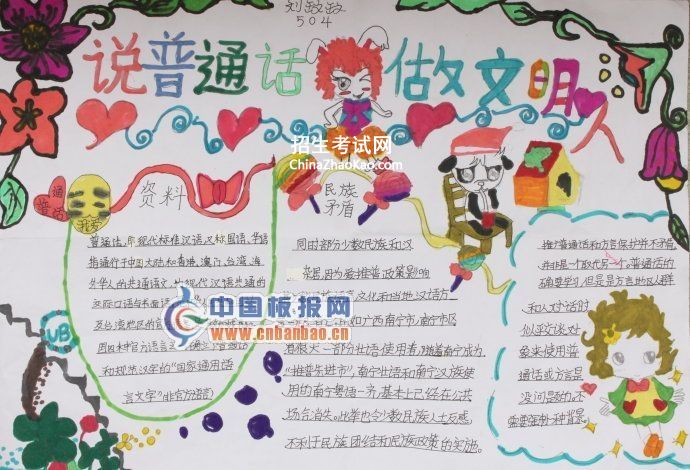 刘致致
504
说普通话 做文明人
招生考试网
ChinaZhaoKao.com
普通话
我爱
资料
普通话,即现代标准汉语,又称国语、华语
指通行于中国大陆和香港、澳门、台湾、海
外华人的共通语文,为现代汉语共通的
实际口语与书面语
及台湾地区的官
因因本村官方语言
和规范汉字的“国家通用语
言文字”(非官方俗语)
中国板报网
www.cnbanbao.cn
民族
矛盾
同时部分少数民族和汉
族居民,因为爱推普政策影响
文化和当地汉语方
如广西南宁市,南宁市区
有很大一部分壮语使用者,随着南宁成为
“推普先进市”,南宁壮语和南宁汉族使
用的南宁粤语一齐,基本上已经在公共
场合消失。此举也令少数民族人士反感,
不利于民族团结和民族政策的实施。
推广普通话和方言保护并不矛盾,
并非是一个取代另一个。普通话的
确要学习,但是是方言地区人群
和人对话时
似乎应该对
象来使用普
通话或方言是
没问题的,不
需要强扑一种背景。
UB